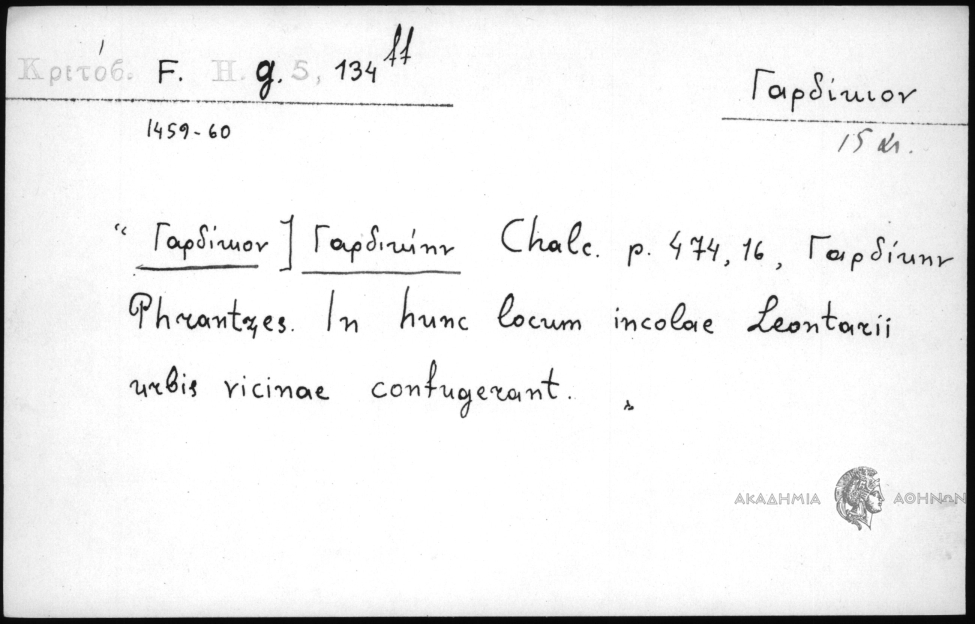 Κριτόβ. F. H. g. 5, 134 ff
Γαρδίκιον
1459-60
15 αι.
“ Γαρδίκιον ] Γαρδικίην Chalc. p. 474, 16, Γαρδίκην
Phrantzes. In hunc locum incolae Leontarii
urbis vicinae confugerant. „
ΑΚΑΔΗΜΙΑ ΑΘΗΝΩΝ